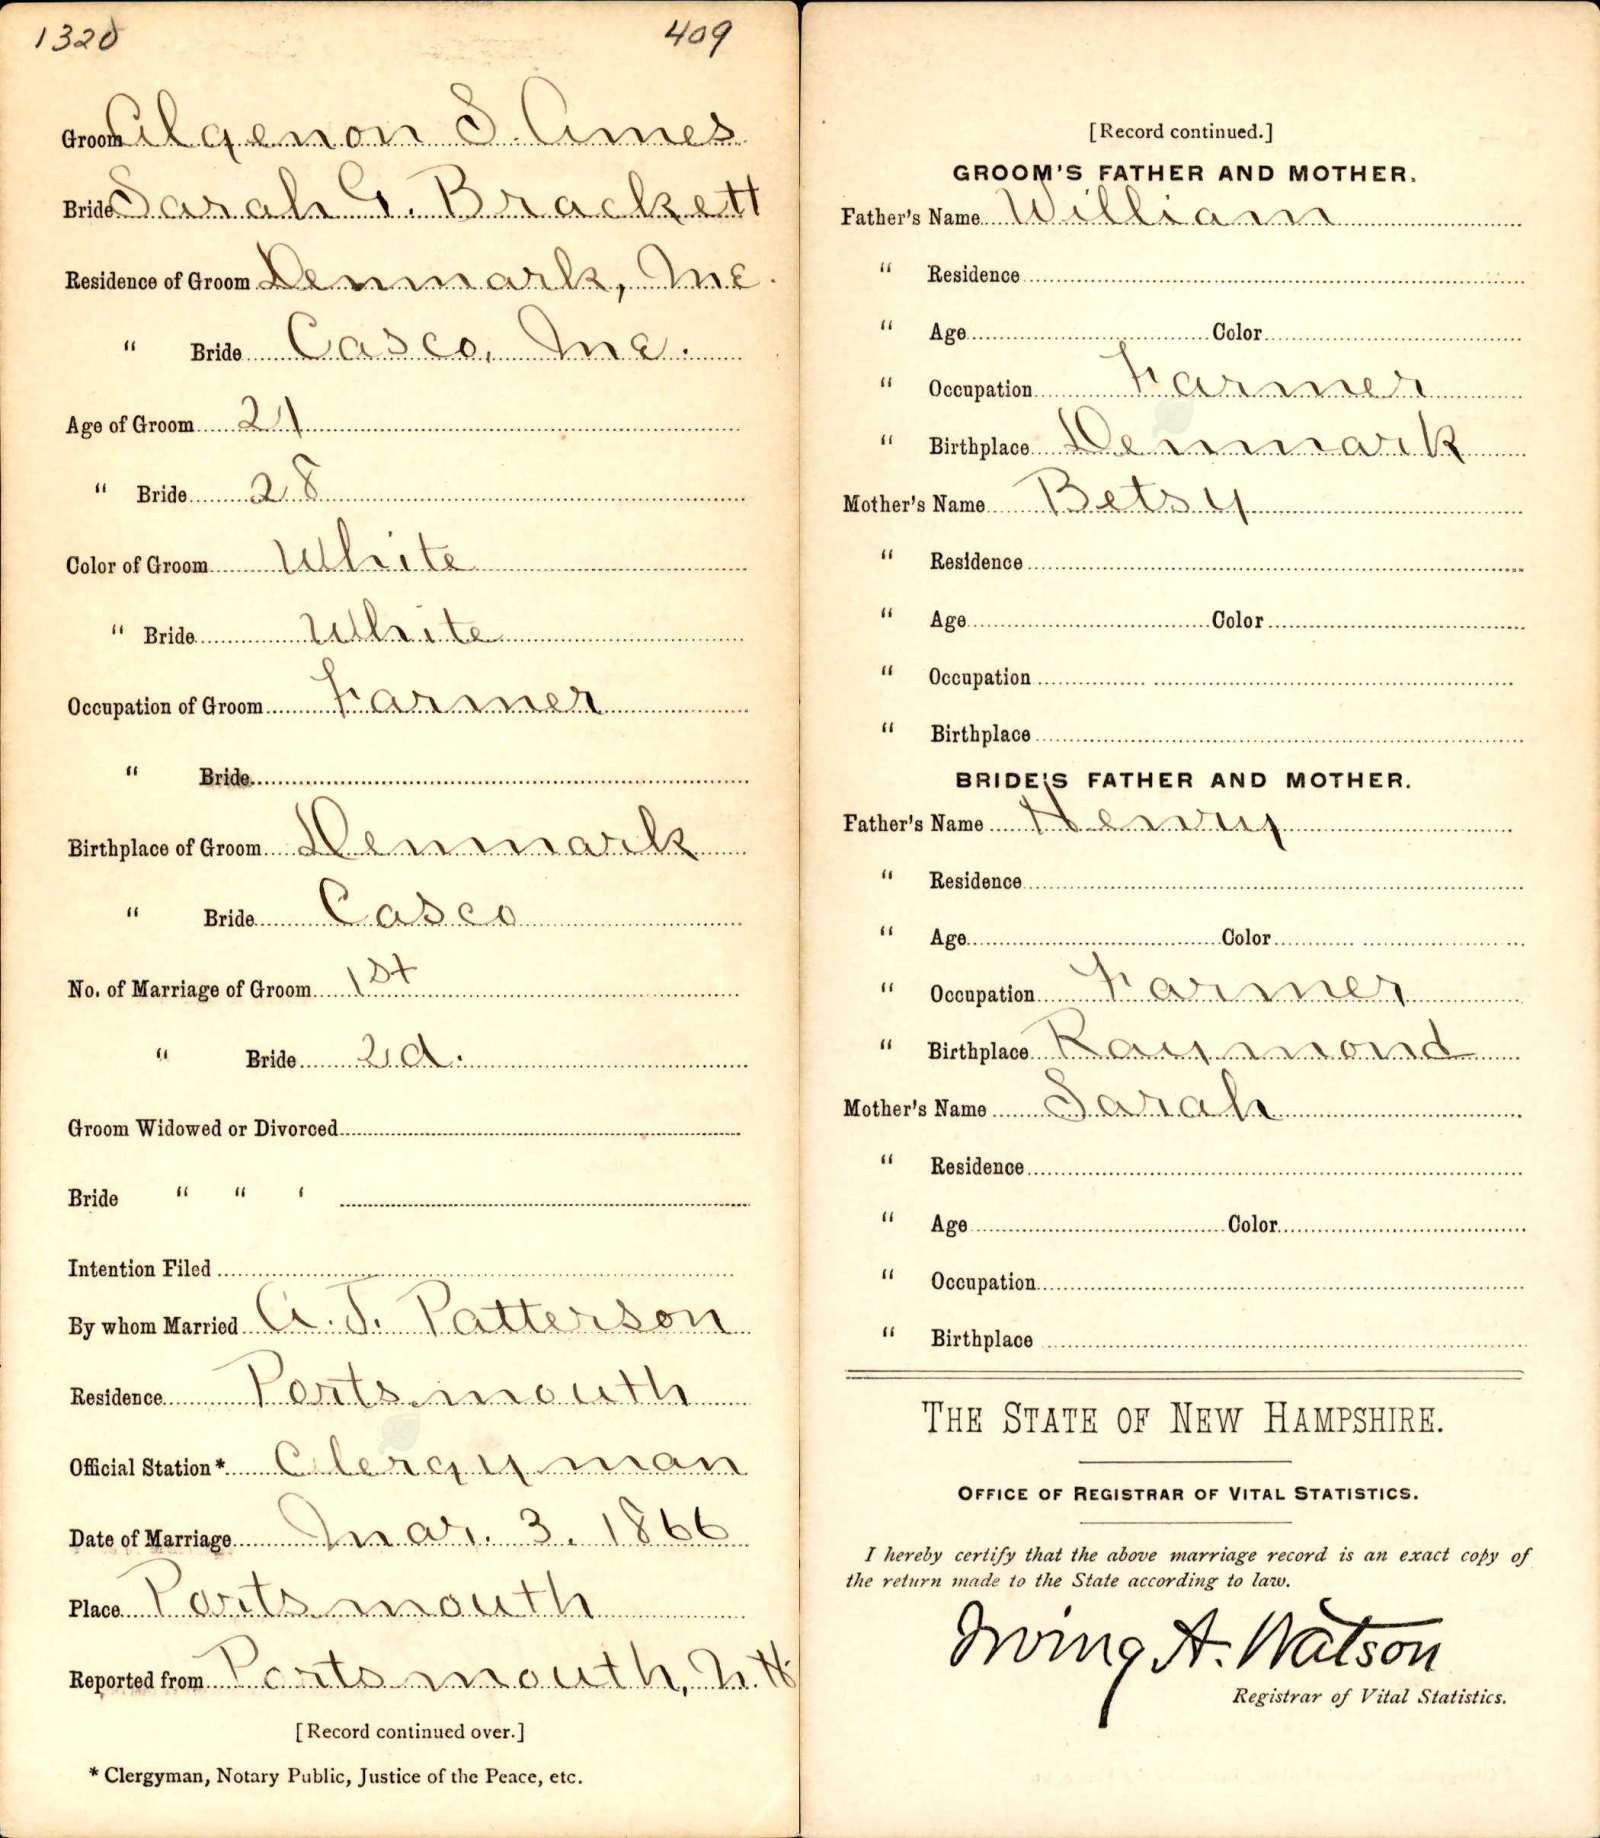 1320 409
Groom Algenon S. Ames
Bride Sarah G. Brackett
Residence of Groom Denmark, Me.
" Bride Casco, Me.
Age of Groom 21
" Bride 28
Color of Groom White
" Bride White
Occupation of Groom Farmer
" Bride
Birthplace of Groom Denmark
" Bride Casco
No. of Marriage of Groom 1st
" Bride 2d.
Groom Widowed or Divorced
Bride " " '
Intention Filed
By whom Married A. J. Patterson
Residence Portsmouth
Official Station* Clergyman
Date of Marriage Mar. 3. 1866
Place Portsmouth
Reported from Portsmouth, N.H.
[Record continued over.]
* Clergyman, Notary Public, Justice of the Peace, etc.
[Record continued.]
GROOM'S FATHER AND MOTHER.
Father's Name William
" Residence
" Age Color
" Occupation Farmer
" Birthplace Denmark
Mother's Name Betsy
" Residence
" Age Color
" Occupation
" Birthplace
BRIDE'S FATHER AND MOTHER.
Father's Name Henry
" Residence
" Age Color
" Occupation Farmer
" Birthplace Raymond
Mother's Name Sarah
" Residence
" Age Color
" Occupation
" Birthplace
THE STATE OF NEW HAMPSHIRE.
OFFICE OF REGISTRAR OF VITAL STATISTICS.
I hereby certify that the above marriage record is an exact copy of
the return made to the State according to law.
Irving A. Watson
Registrar of Vital Statistics.